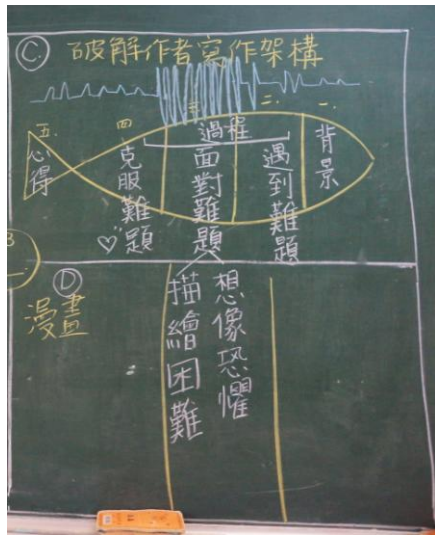 C 破解作者寫作架構
一. 背景
二. 遇到難題
過程
三. 面對難題
四. 克服難題
五. 心得
D
漫畫
想像恐懼
描繪困難